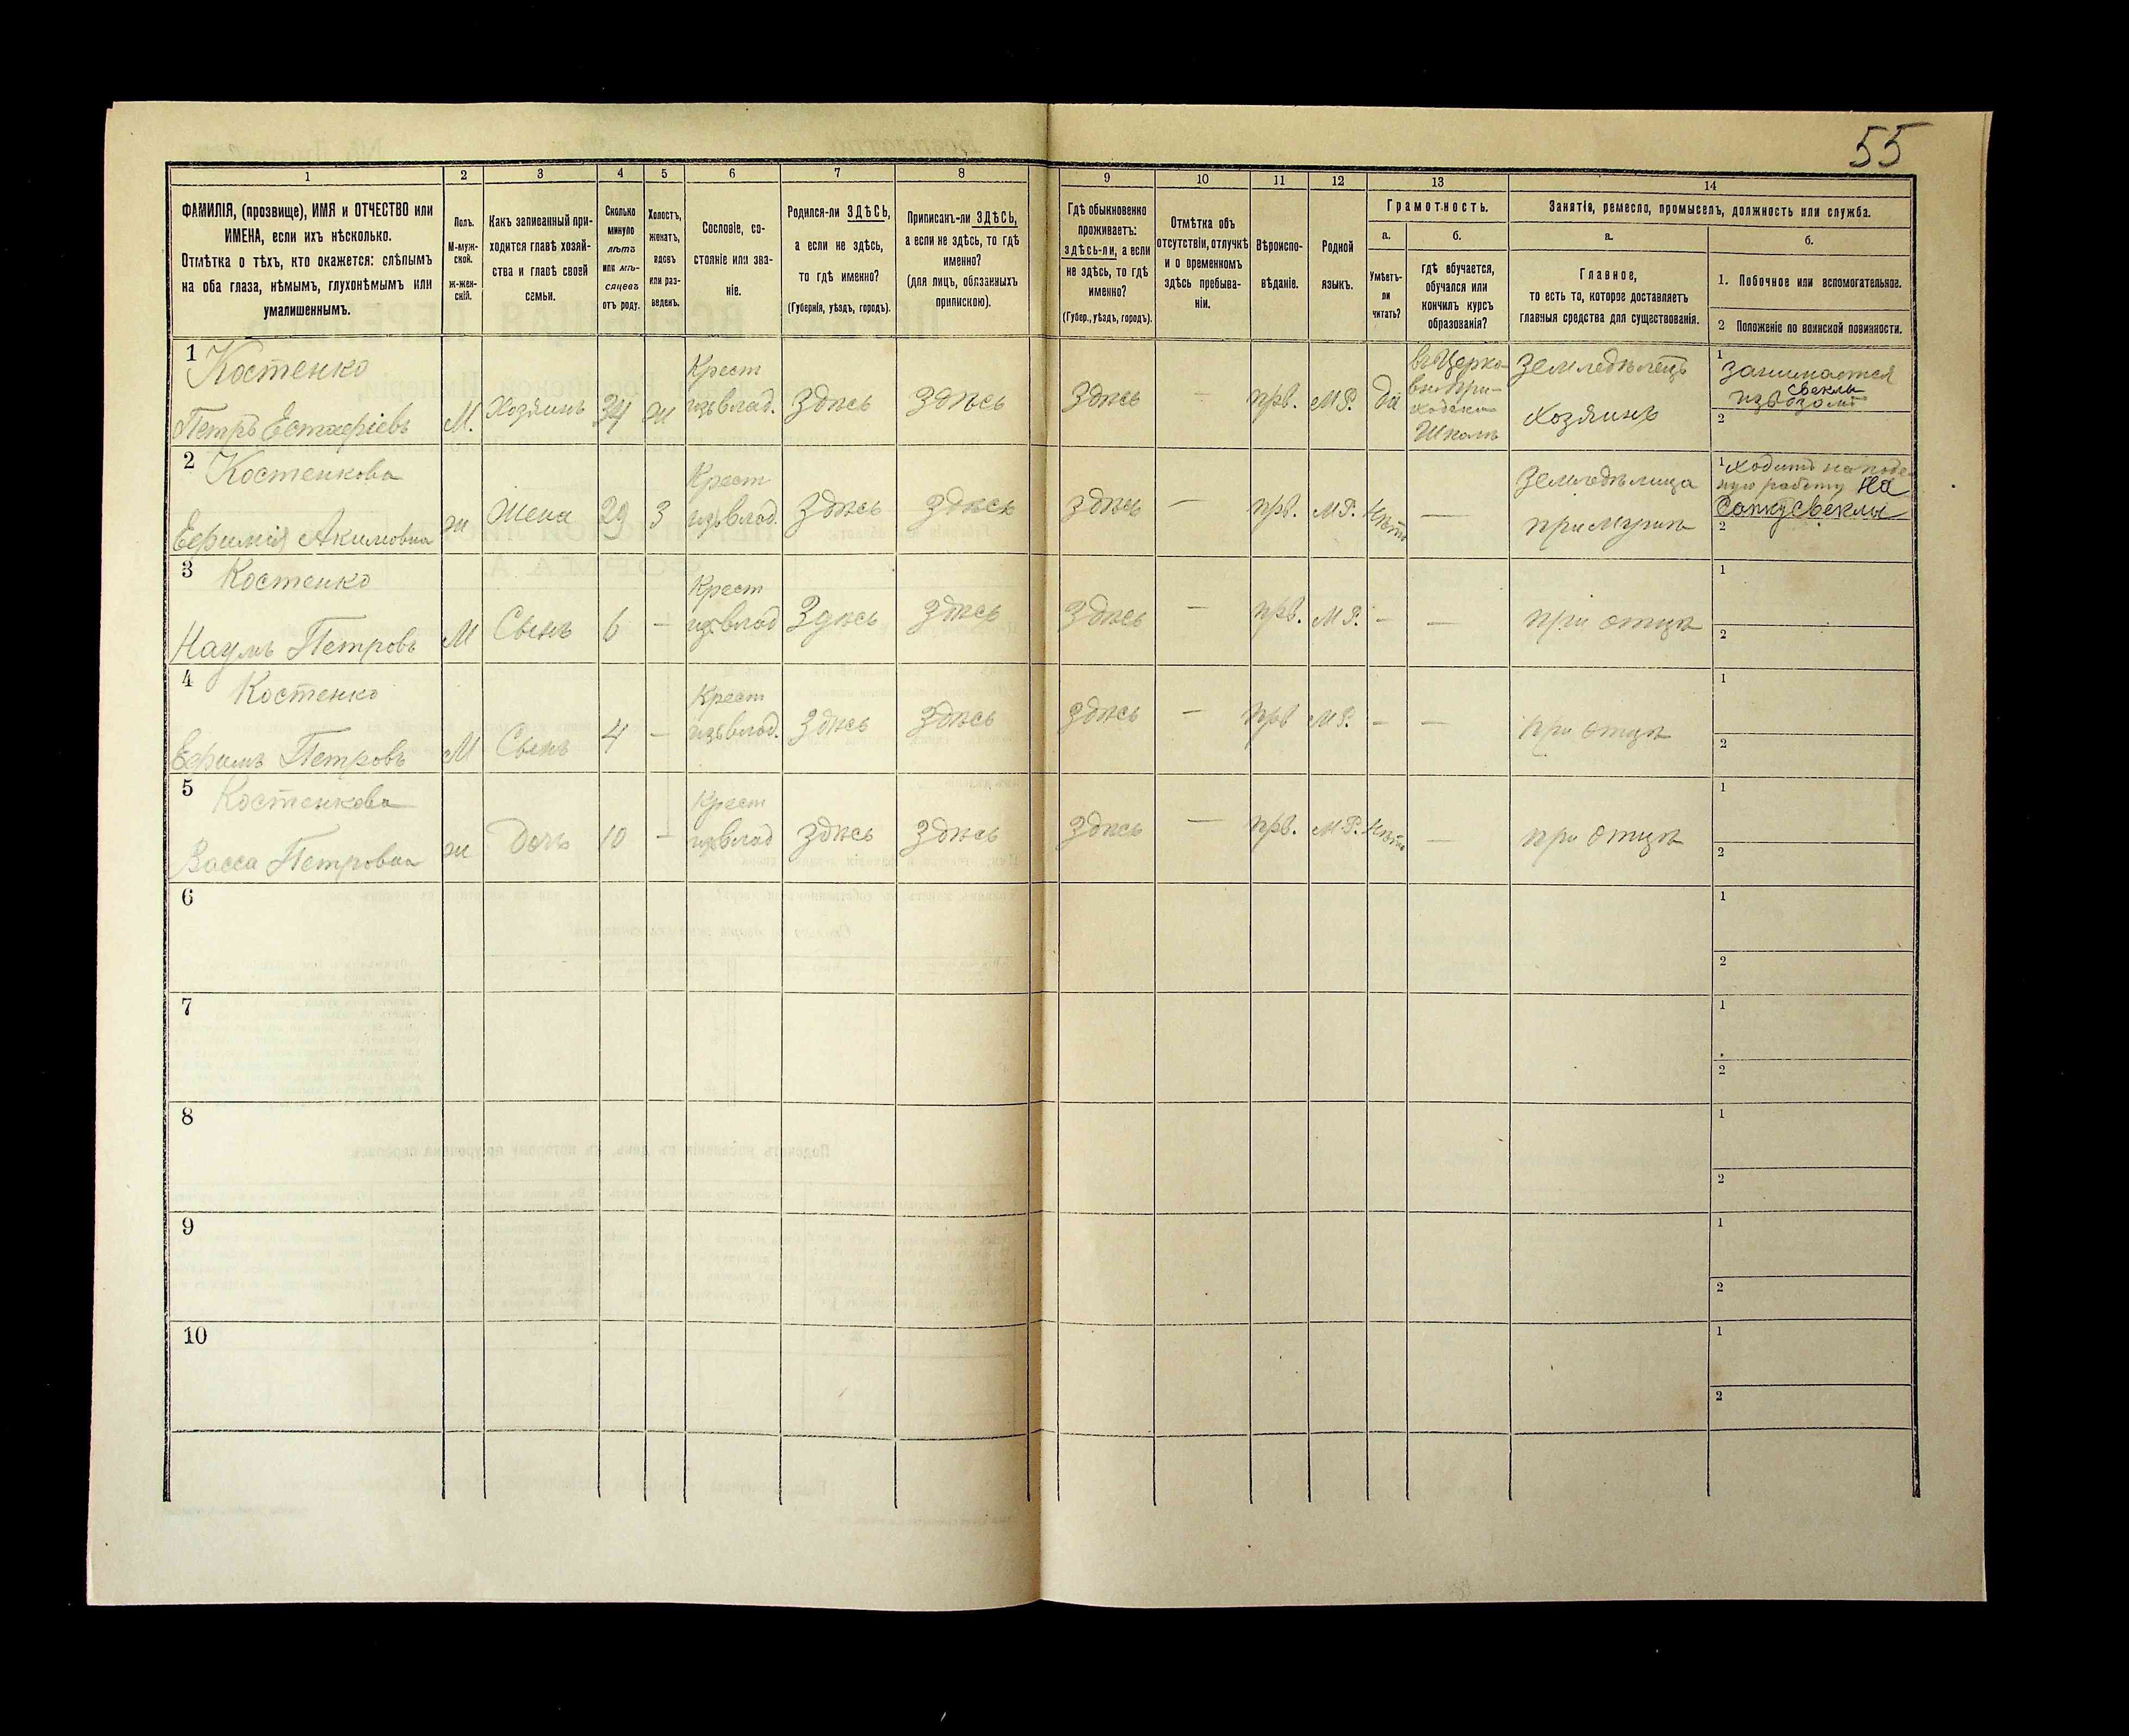 55
1 2 3 4 5 6 7 8 9 10 11 12 13 14
ФАМИЛІЯ, (прозвище), ИМЯ и ОТЧЕСТВО или
ИМЕНА, если ихъ нѣсколько.
Отмѣтка о тѣхъ, кто окажется: слѣпымъ
на оба глаза, нѣмымъ, глухонѣмымъ или
умалишеннымъ.
Полъ.
М-муж-
ской.
ж-жен-
скій.
Какъ записанный при-
ходится главѣ хозяй-
ства и главѣ своей
семьи.
Сколько
минуло
лѣтъ
или мѣ-
сяцевъ
отъ роду.
Холостъ,
женатъ,
вдовъ
или раз-
веденъ.
Сословіе, со-
стояніе или зва-
ніе.
Родился-ли ЗДѢСЬ,
а если не здѣсь,
то гдѣ именно?
(Губернія, уѣздъ, городъ).
Приписанъ-ли ЗДѢСЬ,
а если не здѣсь, то гдѣ
именно?
(для лицъ, обязанныхъ
припискою).
Гдѣ обыкновенно
проживаетъ:
здѣсь-ли, а если
не здѣсь, то гдѣ
именно?
(Губер., уѣздъ, городъ).
Отмѣтка объ
отсутствіи, отлучкѣ
и о временномъ
здѣсь пребыва-
ніи.
Вѣроиспо-
вѣданіе.
Родной
языкъ.
Грамотность.
а.
Умѣетъ-
ли
читать?
б.
гдѣ обучается,
обучался или
кончилъ курсъ
образованія?
Занятія, ремесло, промыселъ, должность или служба.
а.
Главное,
то есть то, которое доставляетъ
главныя средства для существованія.
б.
1. Побочное или вспомогательное.
2 Положеніе по воинской повинности.
1 Костенко
Петръ Евстафіевъ
М.
Хозяинъ
34
ж
Крест
изъ влад.
Здѣсь
Здѣсь
Здѣсь
–
прв.
М.Р.
да
въ Церко-
вно При-
ходской
Школѣ
Земледѣлецъ
Хозяинъ
1 Занимается
свеклы
извозомъ
2
2 Костенкова
Ефимія Акимовна
ж
Жена
29
З
Крест
изъ влад.
Здѣсь
Здѣсь
Здѣсь
–
прв.
М.Р.
Нѣтъ
–
Земледѣлица
при мужѣ
1 Ходитъ на поде-
ную работу на
Сапку свеклы
2
3 Костенко
Наумъ Петровъ
М
Сынъ
6
–
Крест
изъ влад
Здѣсь
Здѣсь
Здѣсь
–
прв.
М.Р.
–
–
при отцѣ
1
2
4 Костенко
Ефимъ Петровъ
М
Сынъ
4
–
Крест
изъ влад.
Здѣсь
Здѣсь
Здѣсь
–
прв
М.Р.
–
–
при отцѣ
1
2
5 Костенкова
Васса Петровна
ж
Дочь
10
–
Крест
изъ влад
Здѣсь
Здѣсь
Здѣсь
–
прв.
М.Р.
Нѣтъ
–
при отцѣ
1
2
6
1
2
7
1
2
8
1
2
9
1
2
10
1
2